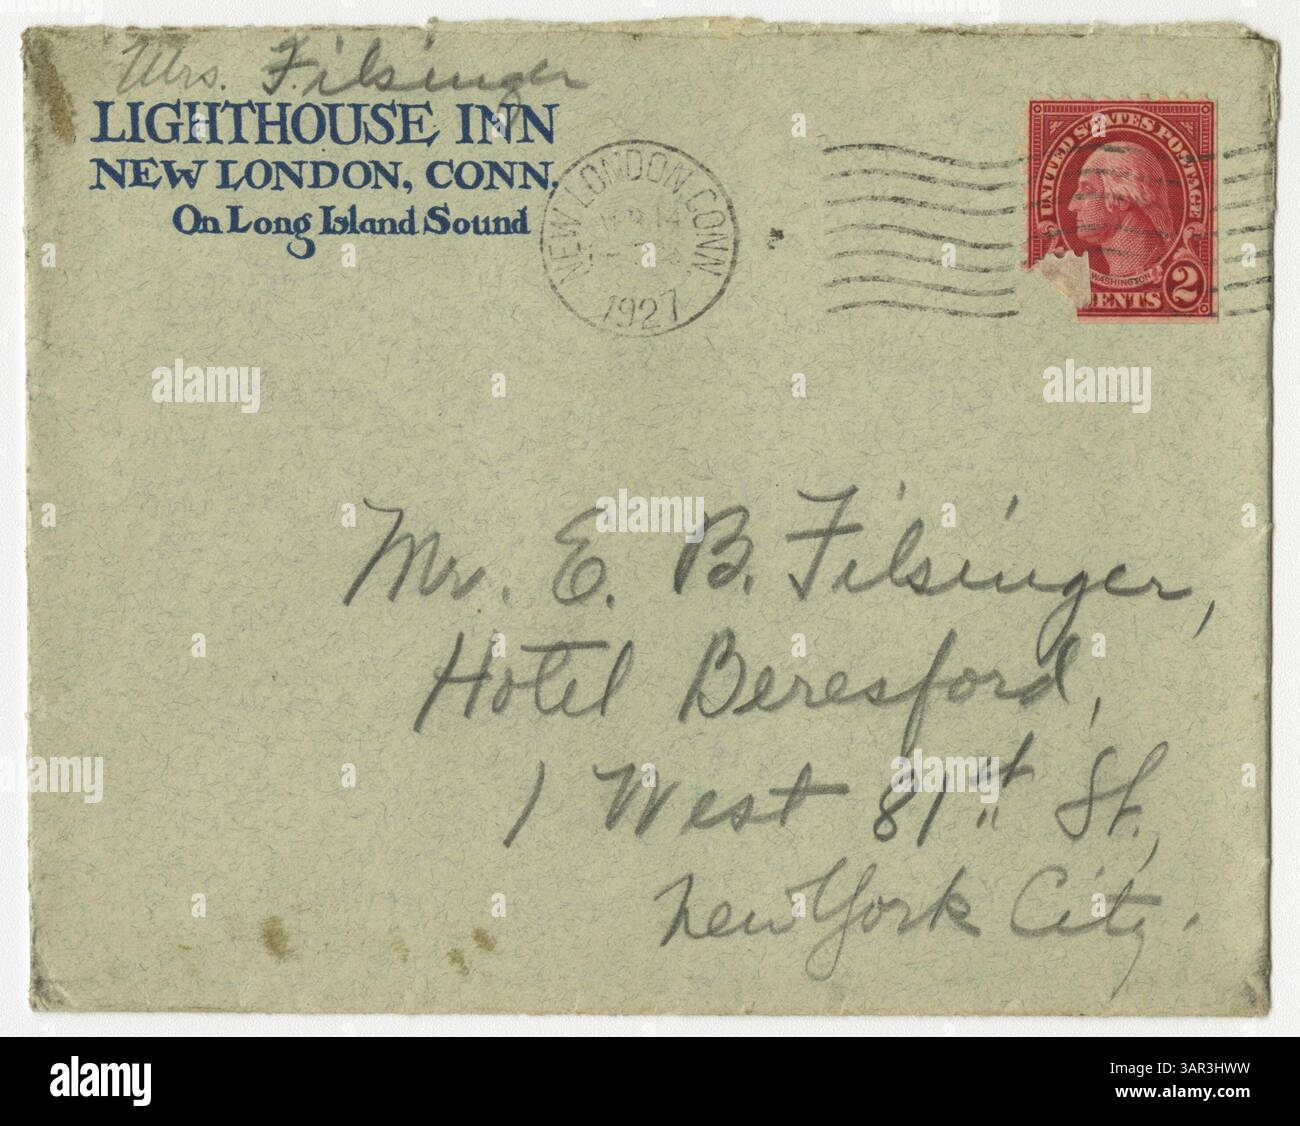 Mrs. Filsinger
LIGHTHOUSE INN
NEW LONDON, CONN.
On Long Island Sound
NEW LONDON, CONN.
14
1927
UNITED STATES POSTAGE
WASHINGTON
CENTS 2
Mr. E. B. Filsinger,
Hotel Beresford,
1 West 81st St.,
New York City.
alamy
alamy
alamy
alamy
alamy
alamy
a
a
a
a
alamy
Image ID: 2AR3HWW
www.alamy.com